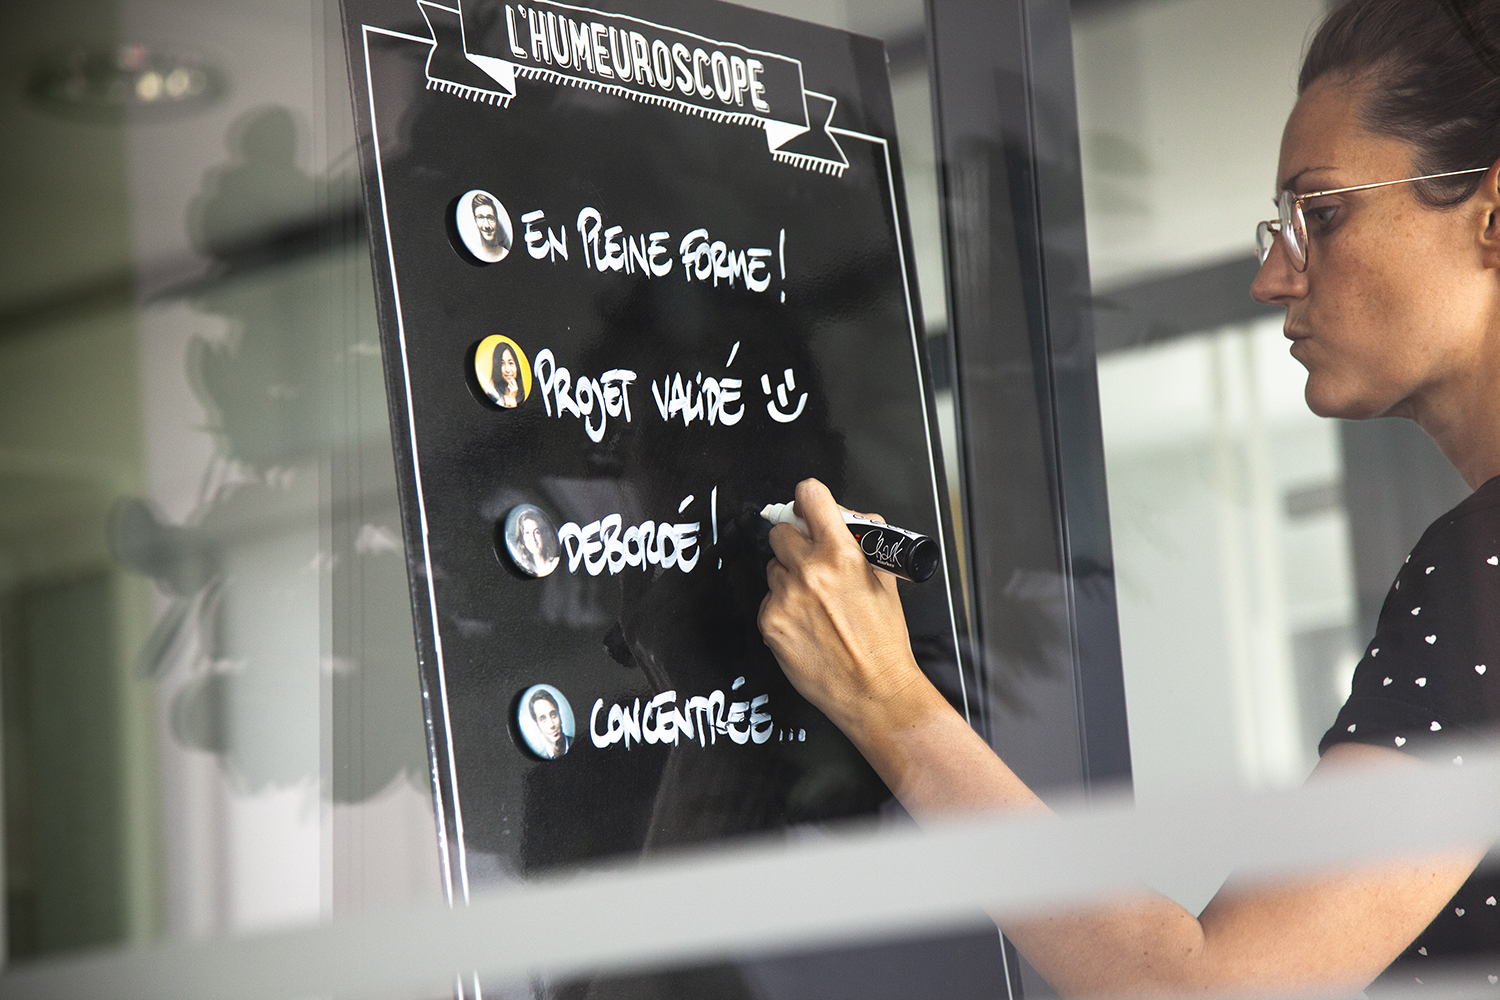 L'HUMEUROSCOPE
EN PLEINE FORME !
PROJET VALIDÉ
DEBORDÉ !
Chalk
CONCENTRÉE...